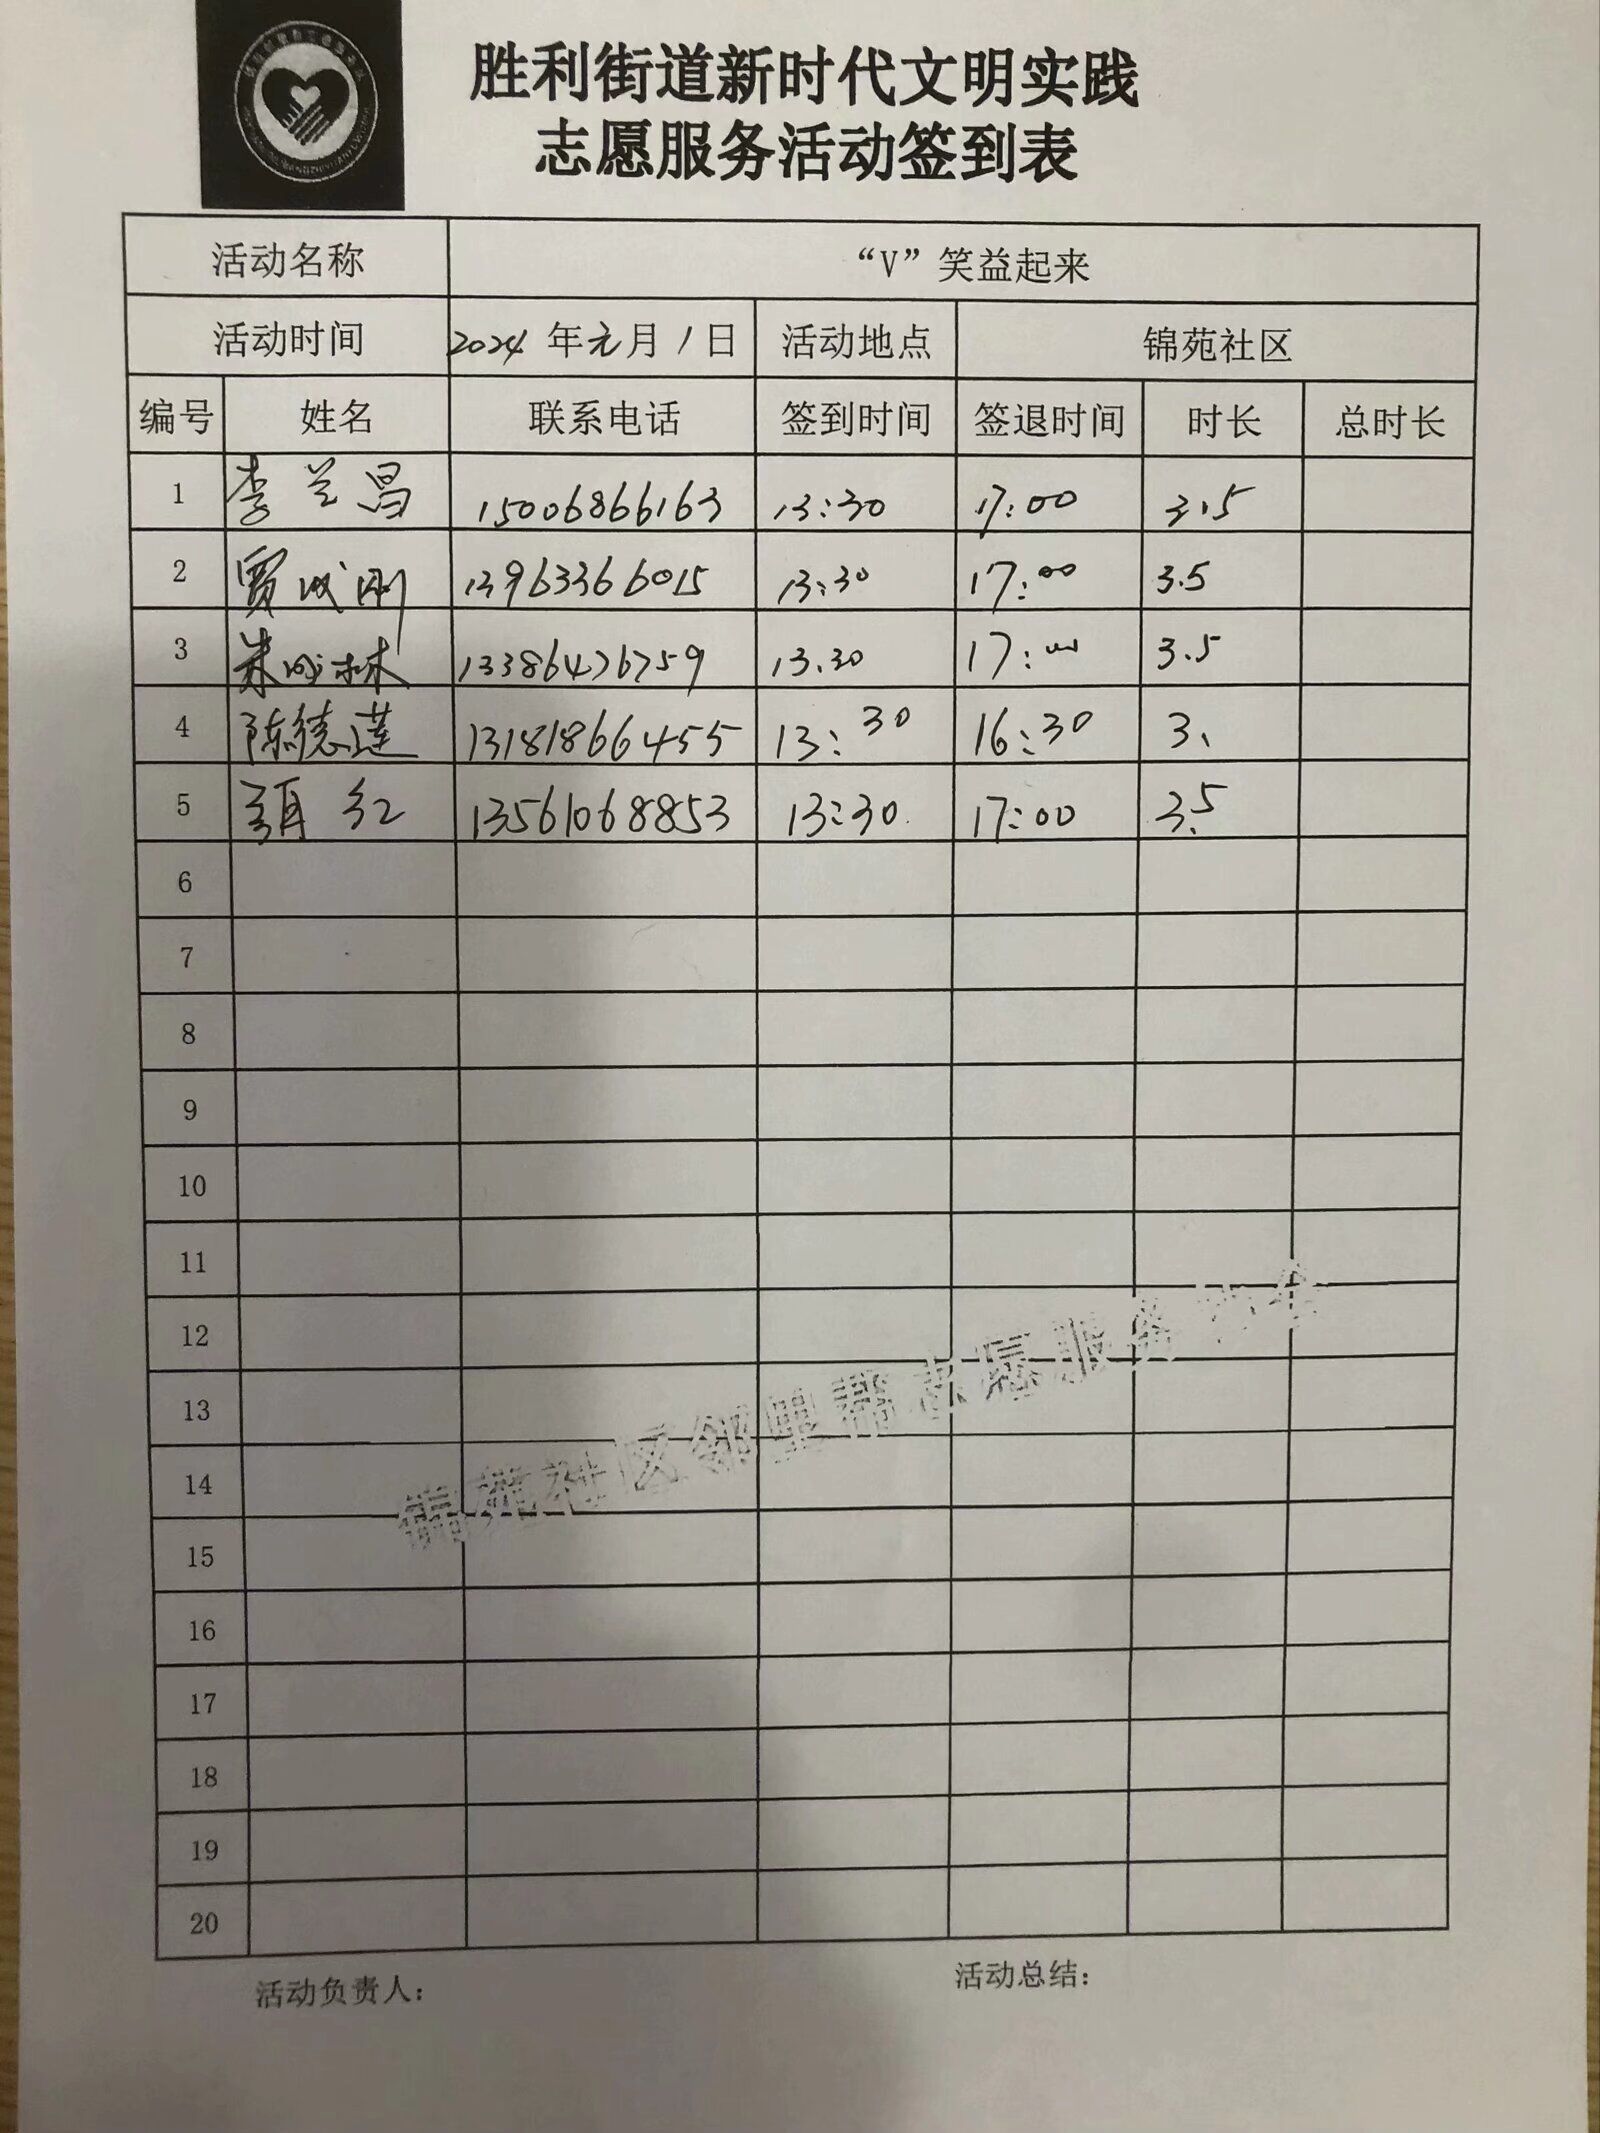 胜利街道新时代文明实践
志愿服务活动签到表
活动名称 “V”笑益起来
活动时间 2024年元月1日 活动地点 锦苑社区
编号 姓名 联系电话 签到时间 签退时间 时长 总时长
1 李兰昌 15006866163 13:30 17:00 3.5
2 贾成刚 13963366015 13:30 17:00 3.5
3 朱成林 13386476759 13.30 17:00 3.5
4 陈德莲 13181866455 13:30 16:30 3.
5 红 13561068853 13:30. 17:00 3.5
6
7
8
9
10
11
12
13
14
15
16
17
18
19
20
锦苑社区邻里帮志愿服务协会
活动负责人：
活动总结：